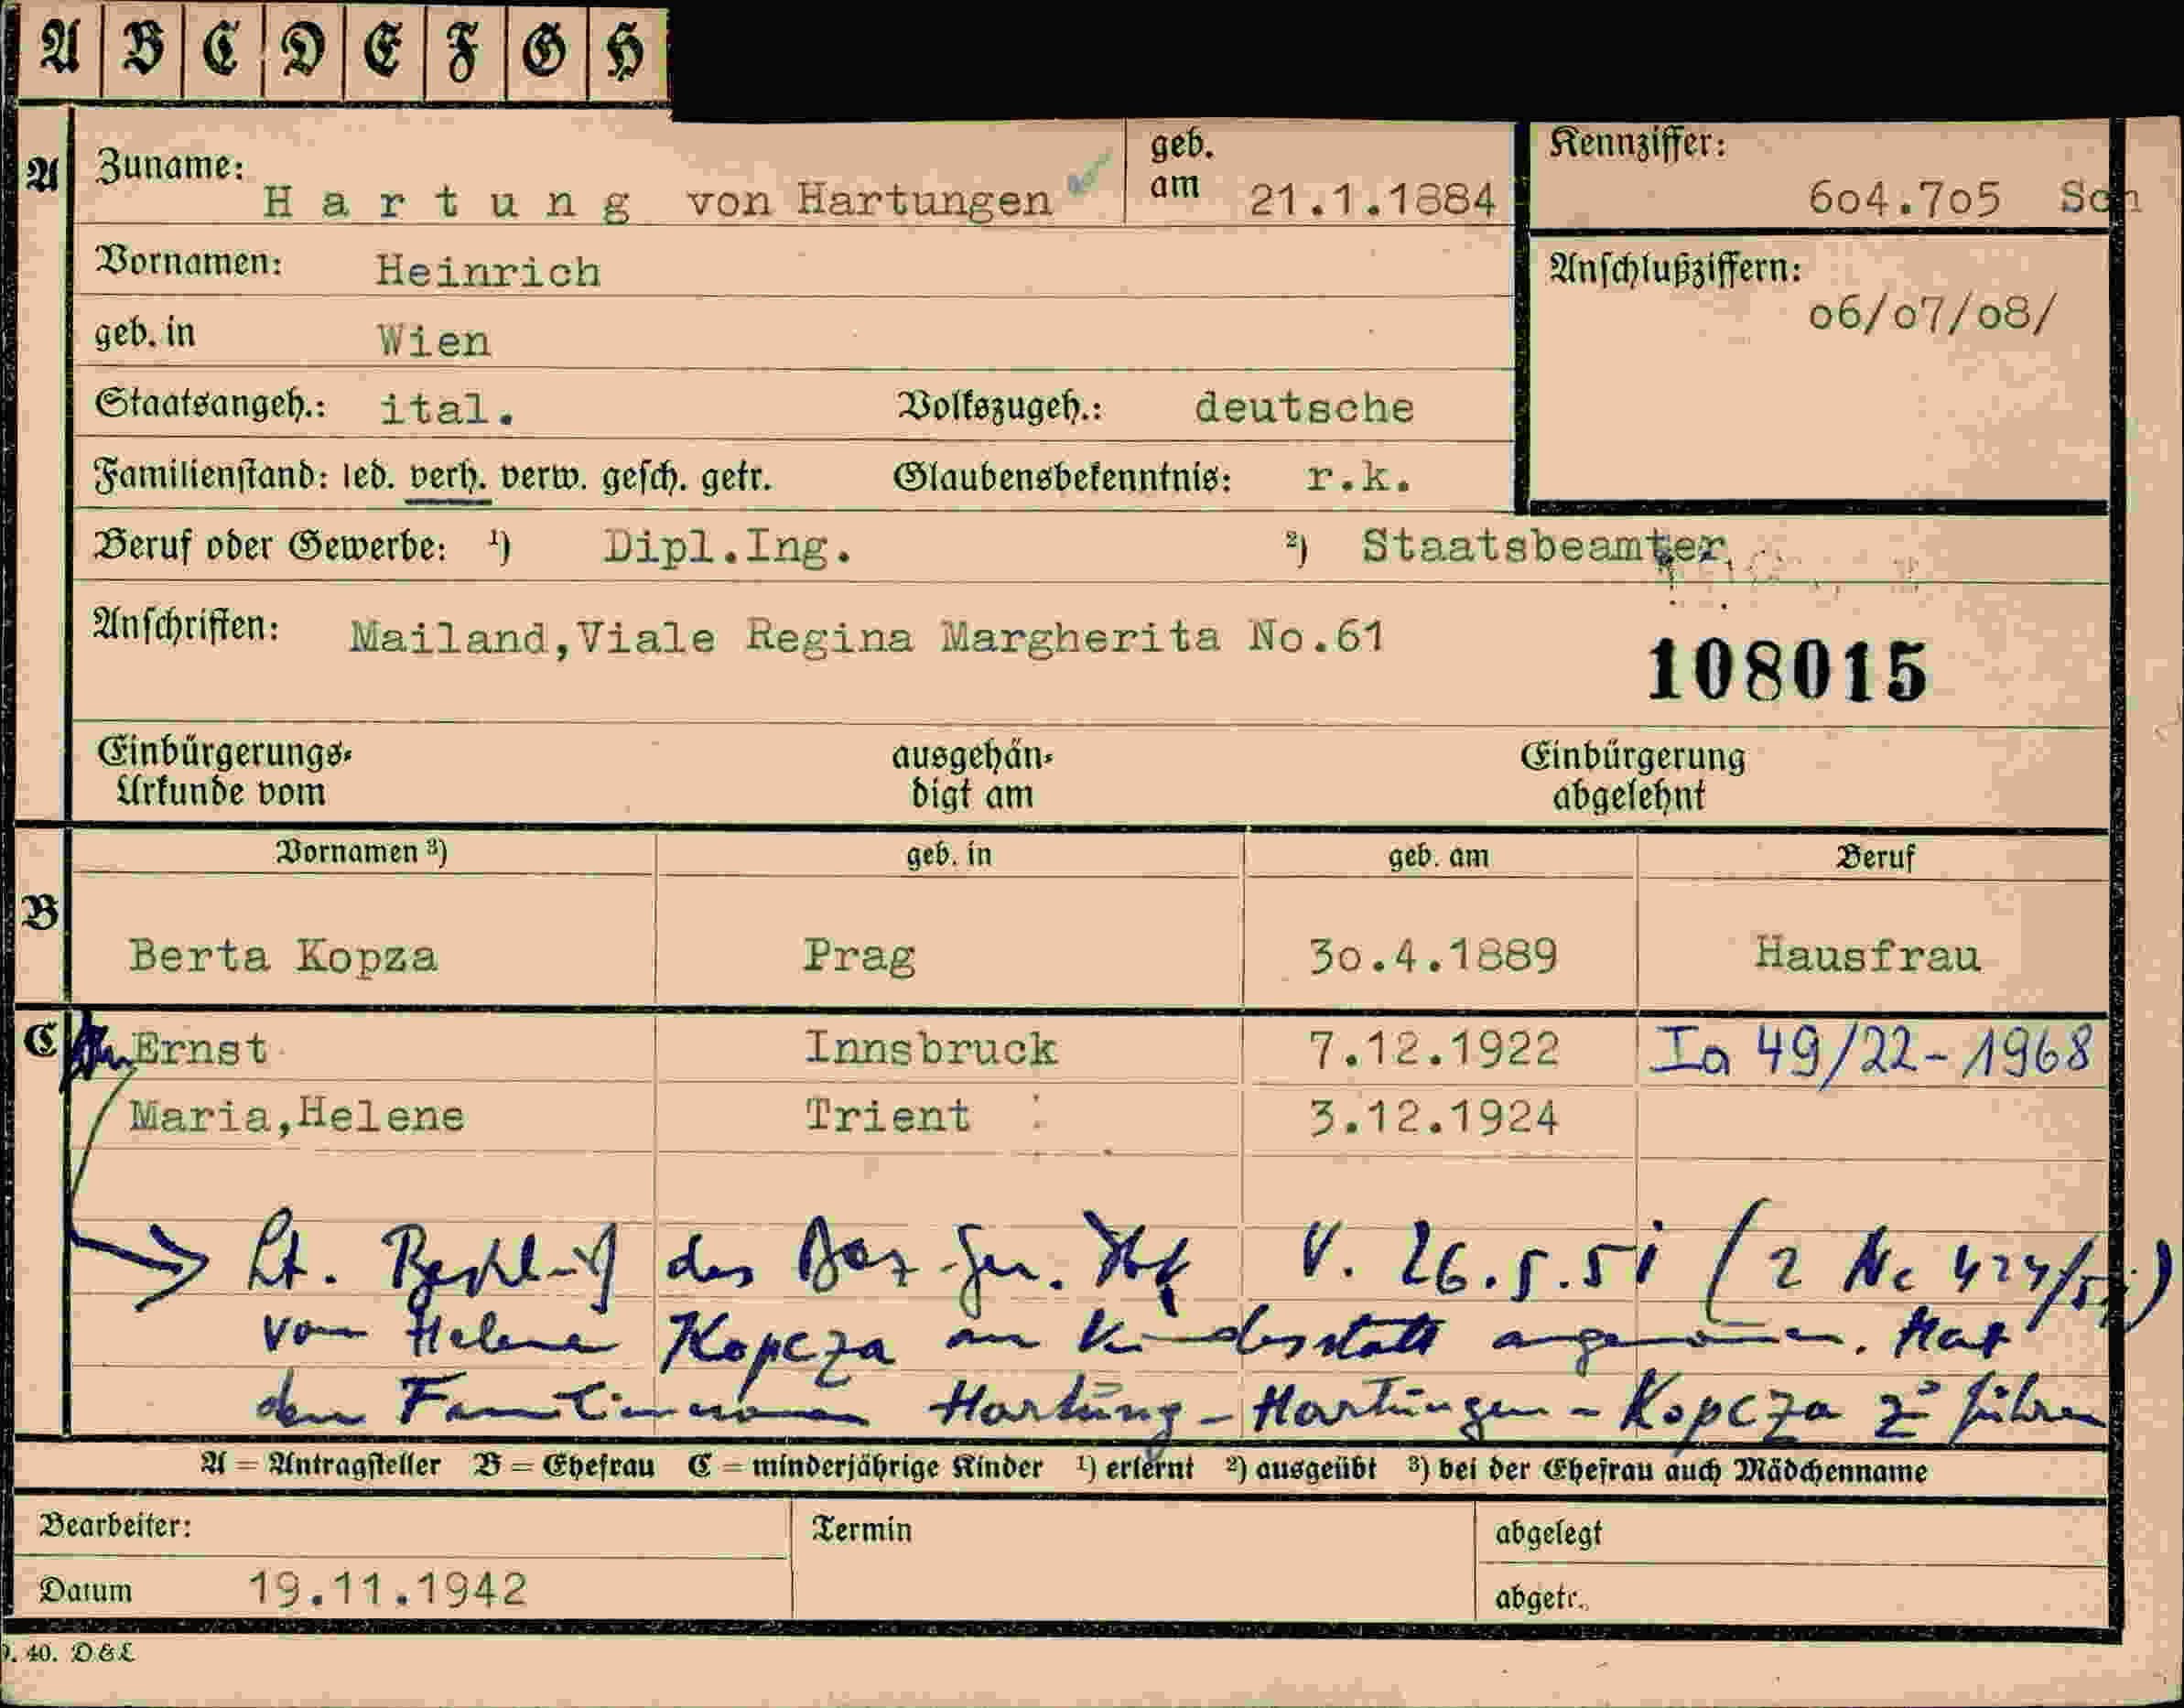 A B C D E F G H
A Zuname: Hartung von Hartungen geb. am 21.1.1884 Kennziffer: 604.705 Sch
Vornamen: Heinrich Anschlußziffern: 06/07/08/
geb. in Wien
Staatsangeh.: ital. Volkszugeh.: deutsche
Familienstand: led. verh. verw. gesch. getr. Glaubensbekenntnis: r.k.
Beruf oder Gewerbe: 1) Dipl.Ing. 2) Staatsbeamter
Anschriften: Mailand,Viale Regina Margherita No.61
108015
Einbürgerungs- ausgehän- Einbürgerung
Urkunde vom digt am abgelehnt
Vornamen 3) geb. in geb. am Beruf
B
Berta Kopza Prag 30.4.1889 Hausfrau
C Ernst Innsbruck 7.12.1922 Ia 49/22-1968
Maria,Helene Trient 3.12.1924
→ Lt. Beschluß des Bez. Ger. v. 26.5.51 (2 Nc
von Helene Kopcza an Kindesstatt angenommen. Hat
den Familiennamen Hartung-Hartungen-Kopcza zu führen
A = Antragsteller B = Ehefrau C = minderjährige Kinder 1) erlernt 2) ausgeübt 3) bei der Ehefrau auch Mädchenname
Bearbeiter: Termin abgelegt
Datum 19.11.1942 abgetr.
9. 40. D&L